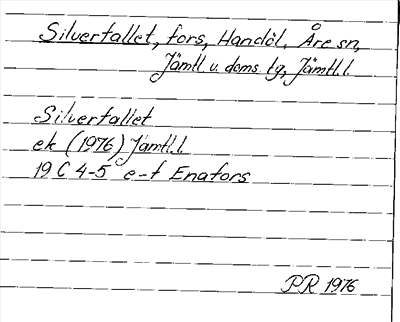 Silverfallet, fors, Handöl, Åre sn,
Jämtl. u. doms. lg, Jämtl. l.
Silverfallet
ek (1976) Jämtl. l.
19 C 4-5 e-f Enafors
PR 1976